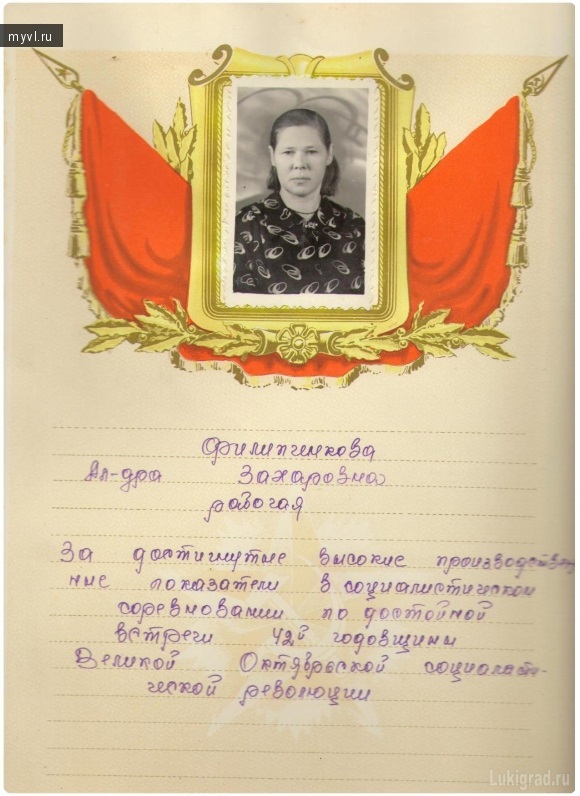 myvl.ru
Филипченкова
Ал-дра Захаровна
рабочая
За достигнутые высокие производствен
ные показатели в социалистической
соревновании по достойной
встречи 42й годовщины
Великой Октябрьской социалисти-
ческой революции
Lukigrad.ru